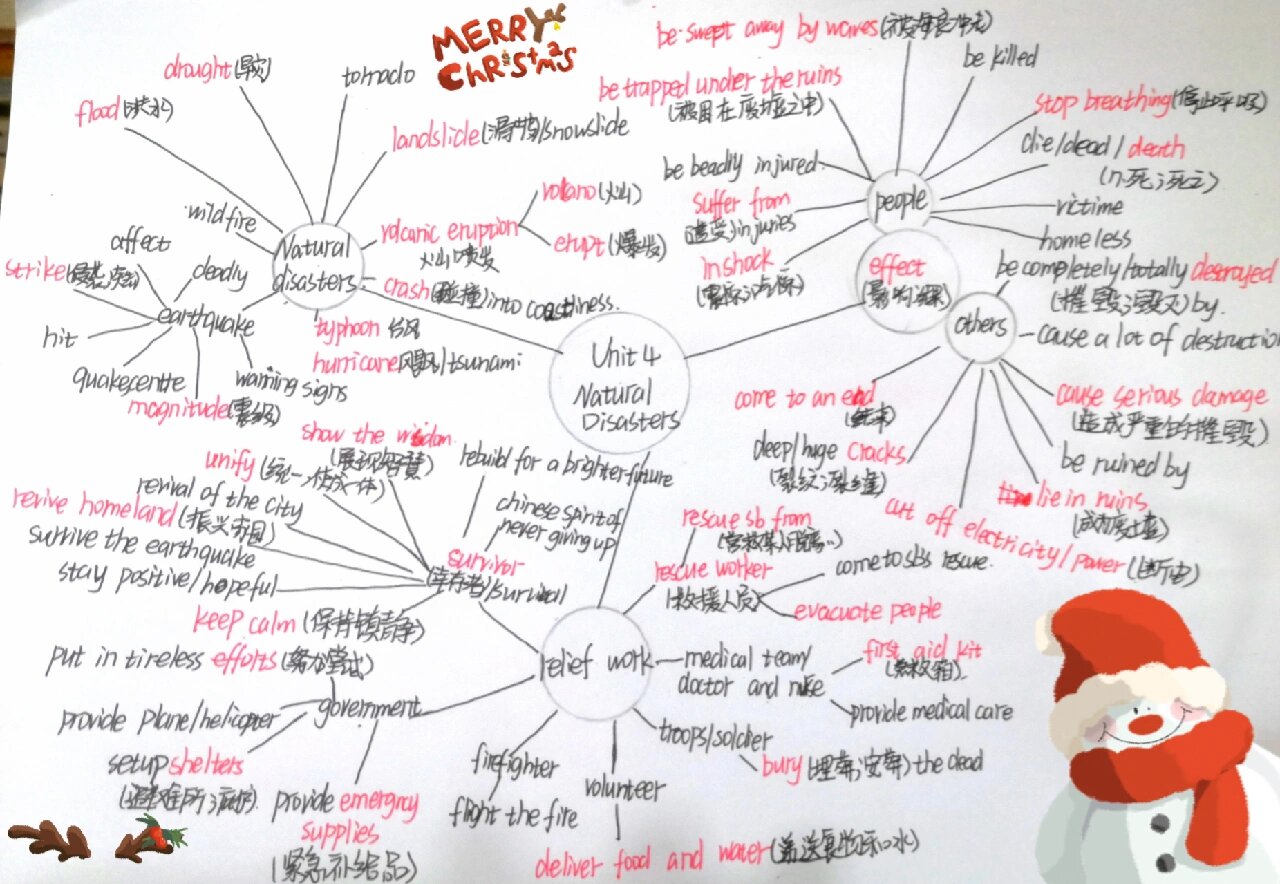 MERRY
CHRISTMAS
Unit 4
Natural
Disasters
Natural
disasters
flood(洪水)
drought(旱灾)
tornado
landslide(滑坡)/snowslide
volcanic eruption
火山喷发
volcano(火山)
erupt(爆发)
crash(碰撞)into
typhoon 台风
hurricane飓风/tsunami
wildfire
earthquake
affect
deadly
strike(侵袭;突击)
hit
quakecentre
magnitude(震级)
warning signs
effect
(影响;结果)
people
be swept away by waves(被海浪冲走)
be killed
be trapped under the ruins
(被困在废墟之中)
stop breathing(停止呼吸)
die/dead/death
(n.死;死亡)
be beadly injured
suffer from
(遭受)injuries
in shock
(震惊;休克)
victime
homeless
others
be completely/totally desroyed
(摧毁;毁灭)by.
cause a lot of destruction
cause serious damage
(造成严重的摧毁)
be ruined by
lie in ruins
(成为废墟)
cut off electricity/power(断电)
deep/huge cracks
(裂纹;裂缝)
come to an end
(结束)
relief work
rescue worker
(救援人员)
rescue sb from
come to sb's rescue.
evacuate people
medical team/
doctor and nurse
first aid kit
(急救箱)
provide medical care
troops/soldier
bury(埋葬;安葬)the dead
volunteer
deliver food and water(递送食物和水)
firefighter
flight the fire
government
put in tireless efforts(努力尝试)
provide plane/helicopter
setup shelters
(避难所;庇护)
provide emergncy
supplies
(紧急补给品)
survivor
(幸存者)/survival
show the wisdom
(展现智慧)
unify(统一,使成一体)
revival of the city
revive homeland(振兴家园)
survive the earthquake
stay positive/hopeful
keep calm(保持镇静)
rebuild for a brighter future
chinese spirit of
never giving up